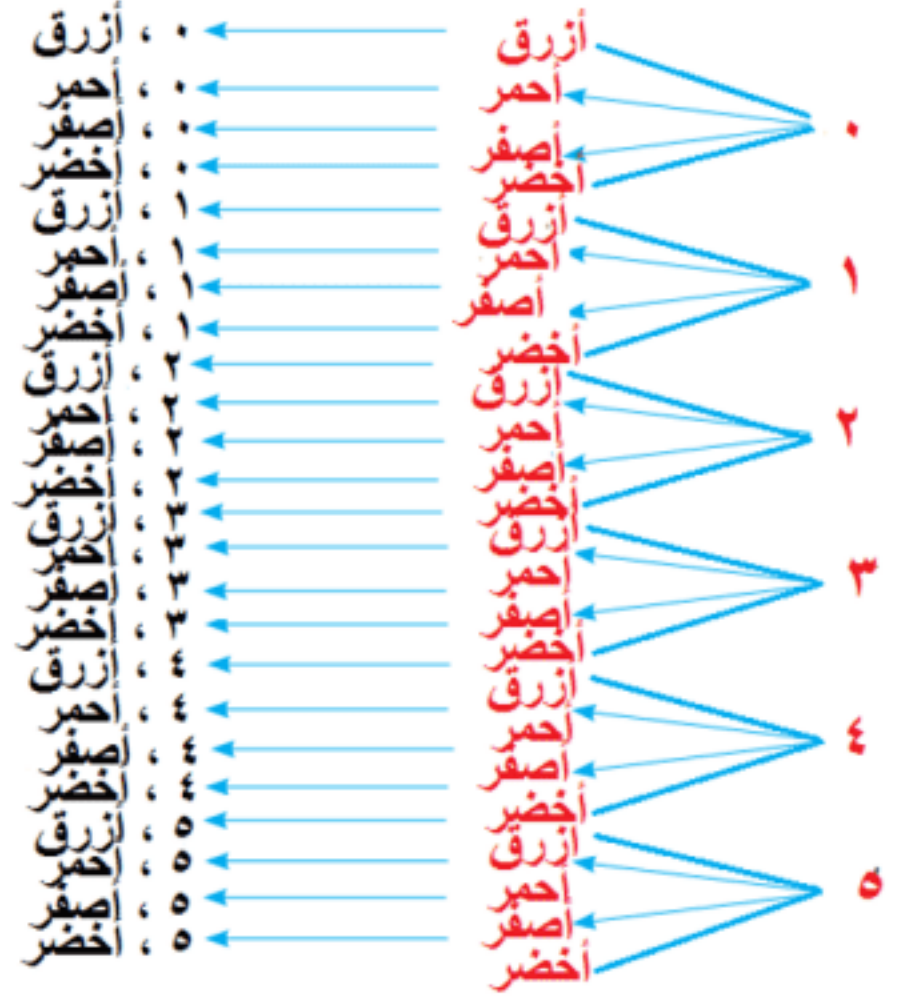 ٠
١
٢
٣
٤
٥
أزرق
أحمر
أصفر
أخضر
أزرق
أحمر
أصفر
أخضر
أزرق
أحمر
أصفر
أخضر
أزرق
أحمر
أصفر
أخضر
أزرق
أحمر
أصفر
أخضر
أزرق
أحمر
أصفر
أخضر
٠ ، أزرق
٠ ، أحمر
٠ ، أصفر
٠ ، أخضر
١ ، أزرق
١ ، أحمر
١ ، أصفر
١ ، أخضر
٢ ، أزرق
٢ ، أحمر
٢ ، أصفر
٢ ، أخضر
٣ ، أزرق
٣ ، أحمر
٣ ، أصفر
٣ ، أخضر
٤ ، أزرق
٤ ، أحمر
٤ ، أصفر
٤ ، أخضر
٥ ، أزرق
٥ ، أحمر
٥ ، أصفر
٥ ، أخضر